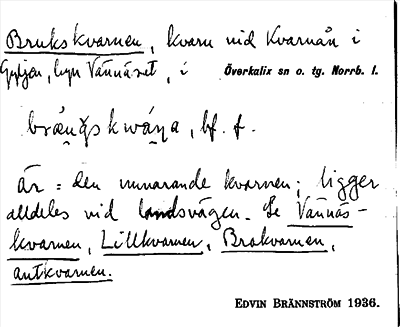 Brukskvarnen, kvarn vid Kvarnån i
Gyljen, byn Vännäset, i Överkalix sn o. tg. Norrb. l.
bf. f.
är: den nuvarande kvarnen; ligger
alldeles vid landsvägen. Se Vännäs-
kvarnen, Lillkvarnen, Brokvarnen,
Antkvarnen.
EDVIN BRÄNNSTRÖM 1936.